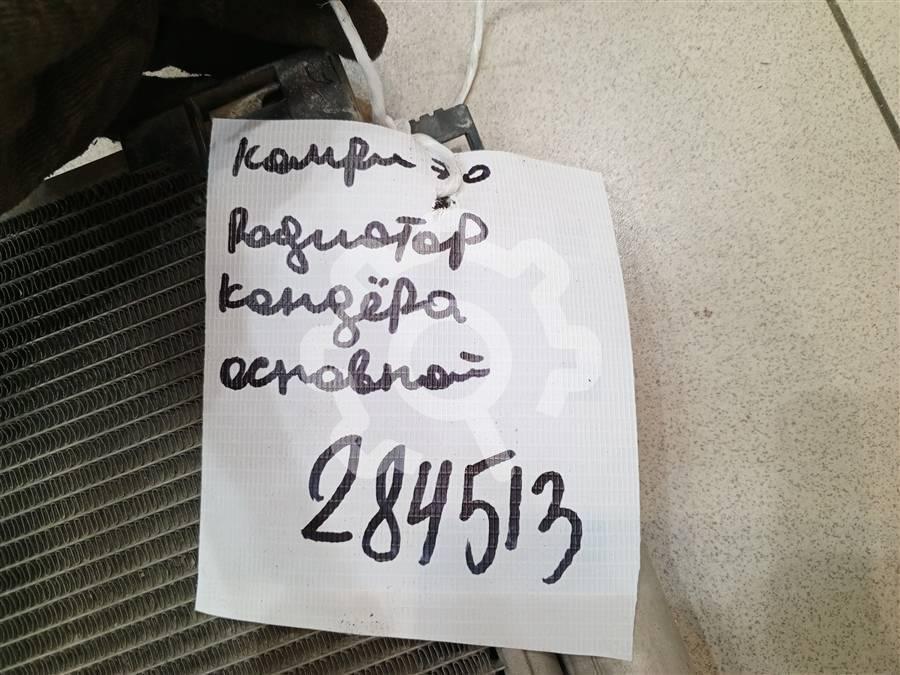 Камри 30
Радиатор
кондёра
основной
284513